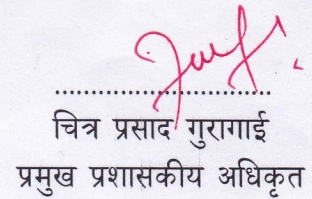 ....................................
चित्र प्रसाद गुरागाई
प्रमुख प्रशासकीय अधिकृत